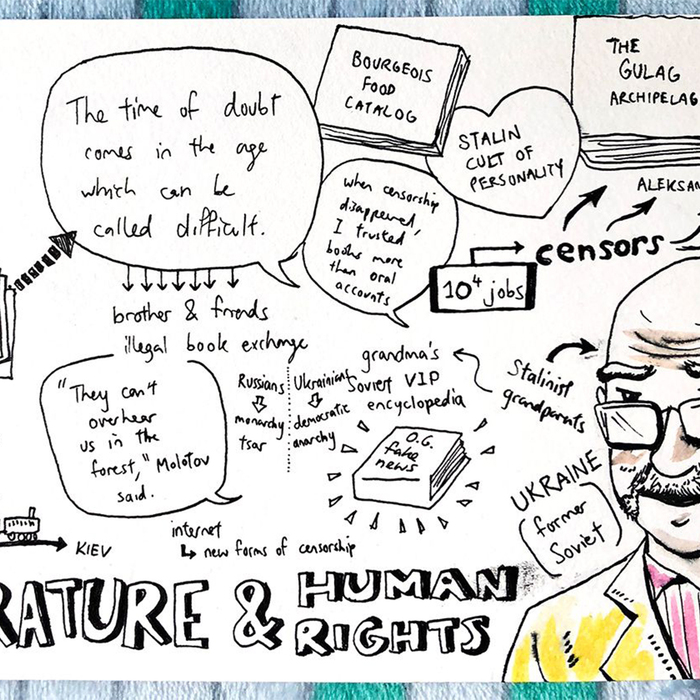 The time of doubt
comes in the age
which can be
called difficult.
BOURGEOIS
FOOD
CATALOG
STALIN
CULT OF
PERSONALITY
THE
GULAG
ARCHIPELAG
ALEKSAN
when censorship
disappeared,
I trusted
books more
than oral
accounts
10⁴ jobs
censors
brother & friends
illegal book exchange
"They can't
overhear
us in the
forest," Molotov
said.
Russians
monarchy
tsar
Ukrainians
democratic
anarchy
grandma's
Soviet VIP
encyclopedia
O.G.
fake
news
Stalinist
grandparents
UKRAINE
former
Soviet
KIEV
internet
new forms of censorship
RATURE & HUMAN
RIGHTS